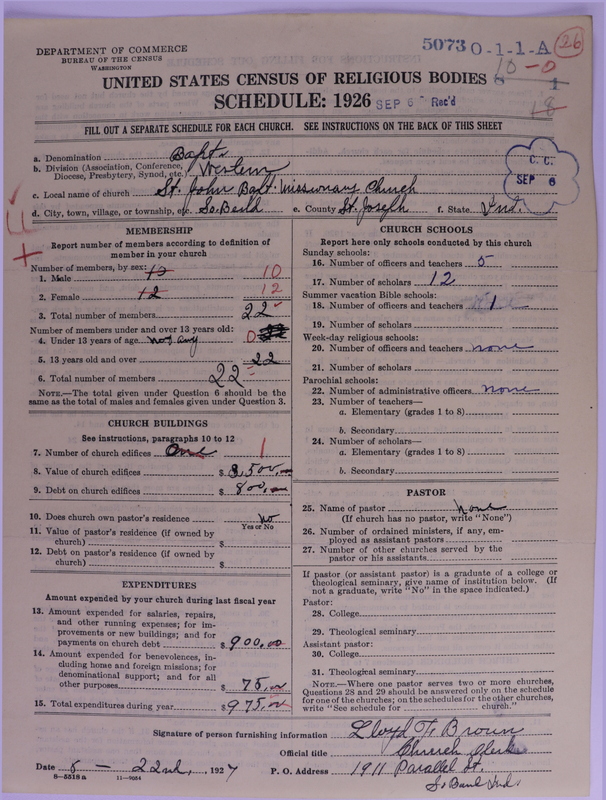 DEPARTMENT OF COMMERCE
BUREAU OF THE CENSUS
WASHINGTON
5073 0-1-1-A 26
10-0
UNITED STATES CENSUS OF RELIGIOUS BODIES
18
SCHEDULE: 1926 SEP 6 Rec'd
FILL OUT A SEPARATE SCHEDULE FOR EACH CHURCH. SEE INSTRUCTIONS ON THE BACK OF THIS SHEET
a. Denomination Bapt.
b. Division (Association, Conference, Diocese, Presbytery, Synod, etc.) Western
C. C.
SEP 6
c. Local name of church St. John Bapt. Missionary Church
d. City, town, village, or township, etc. So. Bend e. County St. Joseph f. State Ind.
MEMBERSHIP
Report number of members according to definition of
member in your church
Number of members, by sex:
1. Male 12 10
2. Female 12 12
3. Total number of members 22
Number of members under and over 13 years old:
4. Under 13 years of age not any 0
5. 13 years old and over 22
6. Total number of members 22
NOTE.—The total given under Question 6 should be the
same as the total of males and females given under Question 3.
CHURCH BUILDINGS
See instructions, paragraphs 10 to 12
7. Number of church edifices One 1
8. Value of church edifices $ 3,500.
9. Debt on church edifices $ 800.
10. Does church own pastor's residence No
Yes or No
11. Value of pastor's residence (if owned by
church) $
12. Debt on pastor's residence (if owned by
church) $
EXPENDITURES
Amount expended by your church during last fiscal year
13. Amount expended for salaries, repairs,
and other running expenses; for im-
provements or new buildings; and for
payments on church debt $ 900.00
14. Amount expended for benevolences, in-
cluding home and foreign missions; for
denominational support; and for all
other purposes $ 75.00
15. Total expenditures during year $ 975.00
CHURCH SCHOOLS
Report here only schools conducted by this church
Sunday schools:
16. Number of officers and teachers 5
17. Number of scholars 12
Summer vacation Bible schools:
18. Number of officers and teachers 1
19. Number of scholars
Week-day religious schools:
20. Number of officers and teachers none
21. Number of scholars
Parochial schools:
22. Number of administrative officers none
23. Number of teachers—
a. Elementary (grades 1 to 8)
b. Secondary
24. Number of scholars—
a. Elementary (grades 1 to 8)
b. Secondary
PASTOR
25. Name of pastor None
(If church has no pastor, write "None")
26. Number of ordained ministers, if any, em-
ployed as assistant pastors
27. Number of other churches served by the
pastor or his assistants
If pastor (or assistant pastor) is a graduate of a college or
theological seminary, give name of institution below. (If
not a graduate, write "No" in the space indicated.)
Pastor:
28. College
29. Theological seminary
Assistant pastor:
30. College
31. Theological seminary
NOTE.—Where one pastor serves two or more churches,
Questions 28 and 29 should be answered only on the schedule
for one of the churches; on the schedules for the other churches,
write "See schedule for church."
Signature of person furnishing information Lloyd F. Brown
Official title Church Clerk
Date 8 — 22nd, 1927 P. O. Address 1911 Parallel St.
8—5518a 11—9084 So Bend Ind.